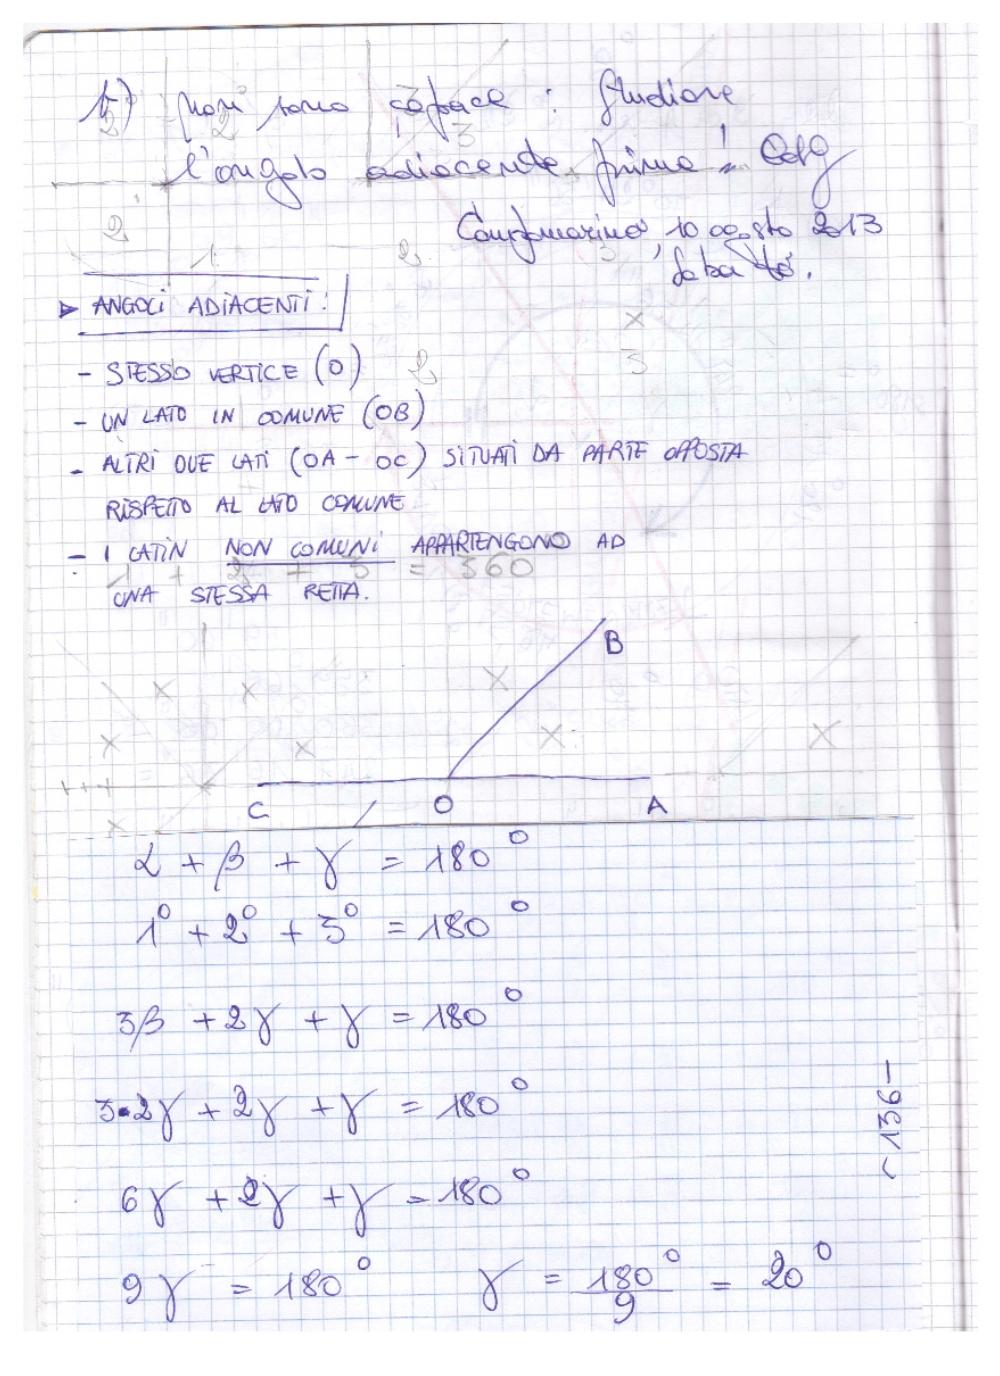 b) non sono capace : studiare
l'angolo adiacente prima !
Campomarino, 10 agosto 2013
, sabato.
▸ ANGOLI ADIACENTI :
- STESSO VERTICE (O)
- UN LATO IN COMUNE (OB)
- ALTRI DUE LATI (OA - OC) SITUATI DA PARTE OPPOSTA
RISPETTO AL LATO COMUNE
- I LATIN NON COMUNI APPARTENGONO AD
1 + 2 + 3 = 360
UNA STESSA RETTA.
B
C O A
α + β + γ = 180°
1° + 2° + 3° = 180°
3β + 2γ + γ = 180°
3•2γ + 2γ + γ = 180°
6γ + 2γ + γ = 180°
9γ = 180° γ = 180°/9 = 20°
-136-